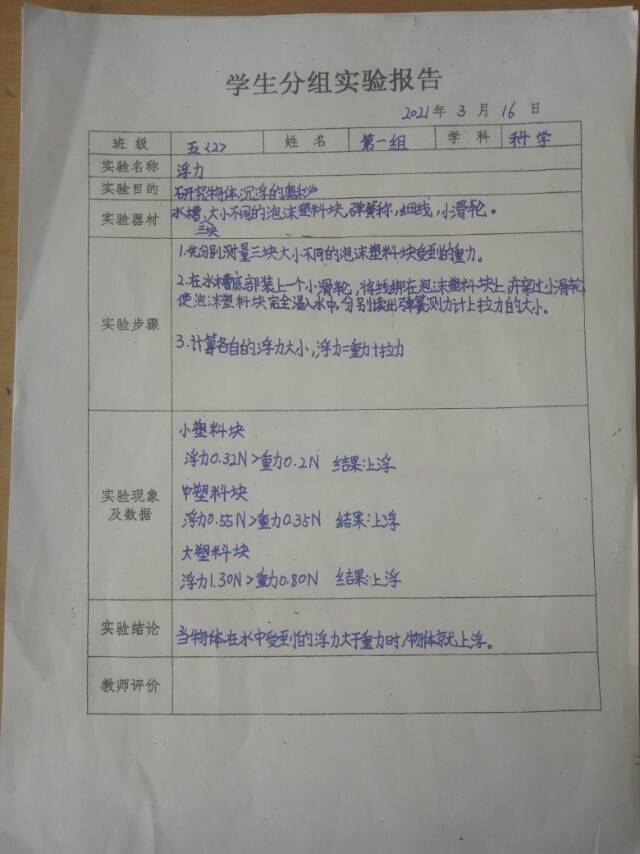 学生分组实验报告
2021年 3 月 16 日
班级 五〈2〉 姓名 第一组 学科 科学
实验名称 浮力
实验目的 研究物体沉浮的奥秘
实验器材 水槽、大小不同的泡沫塑料块,弹簧称,细线,小滑轮。
三块
1.先分别测量三块大小不同的泡沫塑料块受到的重力。
2.在水槽底部装上一个小滑轮,将线绑在泡沫塑料块上,并穿过小滑轮,
使泡沫塑料块完全浸入水中,分别读出弹簧测力计上拉力的大小。
实验步骤
3.计算各自的浮力大小,浮力=重力+拉力
小塑料块
浮力0.32N>重力0.2N 结果:上浮
中塑料块
实验现象
及数据
浮力0.55N>重力0.35N 结果:上浮
大塑料块
浮力1.30N>重力0.80N 结果:上浮
实验结论 当物体在水中受到的浮力大于重力时,物体就上浮。
教师评价